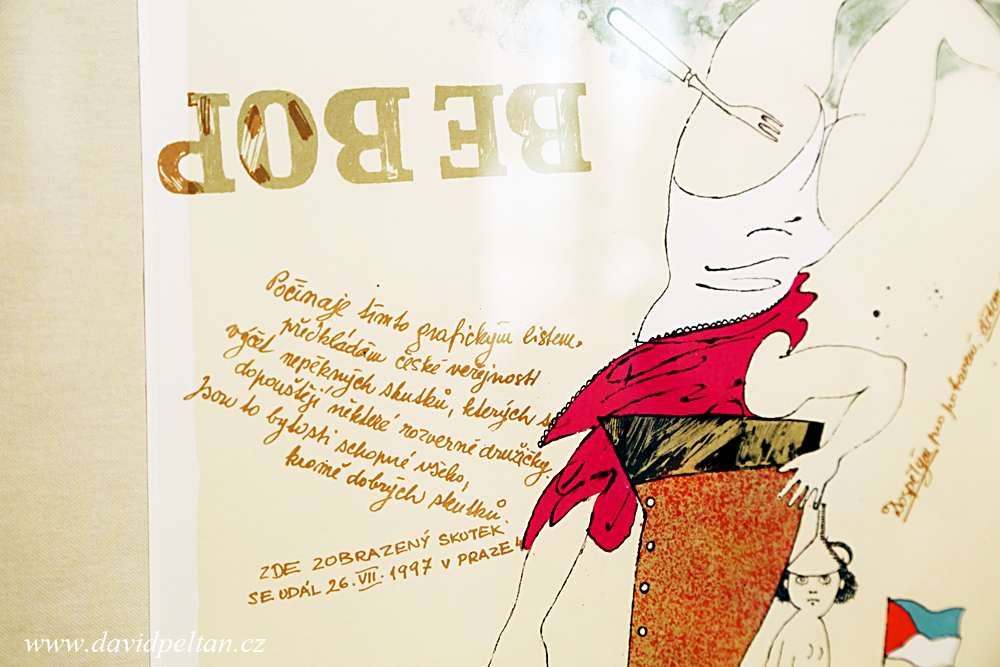 BE BOP
Počínaje tímto grafickým listem,
předkládám české veřejnosti
výčet nepěkných skutků, kterých se
dopouštějí některé rozverné družičky.
Jsou to bytosti schopné všeho,
kromě dobrých skutků.
ZDE ZOBRAZENÝ SKUTEK
SE UDÁL 26. VII. 1997 V PRAZE 4
Dospělým pro pobavení
www.davidpeltan.cz